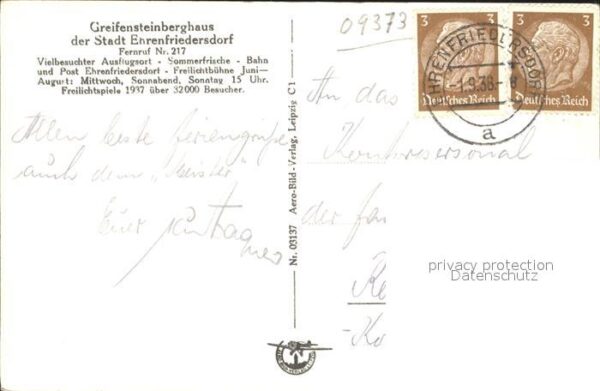 Greifensteinberghaus
der Stadt Ehrenfriedersdorf
Fernruf Nr. 217
Vielbesuchter Ausflugsort - Sommerfrische - Bahn
und Post Ehrenfriedersdorf - Freilichtbühne Juni-
August: Mittwoch, Sonnabend, Sonntag 15 Uhr.
Freilichtspiele 1937 über 32000 Besucher.
Allen beste Feriengrüße
auch dem "Meister"
Euer
Nr. 03137 Aero-Bild-Verlag, Leipzig C 1
09373
3 3
Deutsches Reich
3 3
Deutsches Reich
EHRENFRIEDERSDORF
a
An das
der
privacy protection
Datenschutz